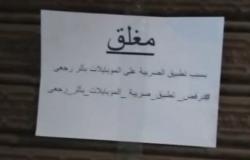 مغلق
بسبب تطبيق الضريبة على الموبايلات بأثر رجعى
#نرفض_تطبيق_ضريبة_الموبايلات_بأثر_رجعى